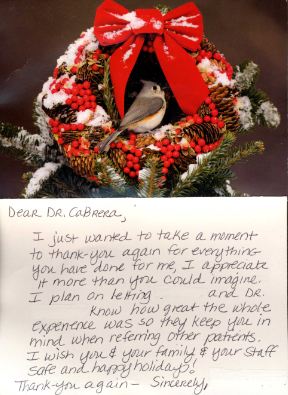 Dear Dr. Cabrera,
I just wanted to take a moment
to thank-you again for everything
you have done for me, I appreciate
it more than you could imagine.
I plan on letting and Dr.
know how great the whole
experience was so they keep you in
mind when referring other patients.
I wish you & your family & your staff
safe and happy holidays!
Thank-you again - Sincerely,